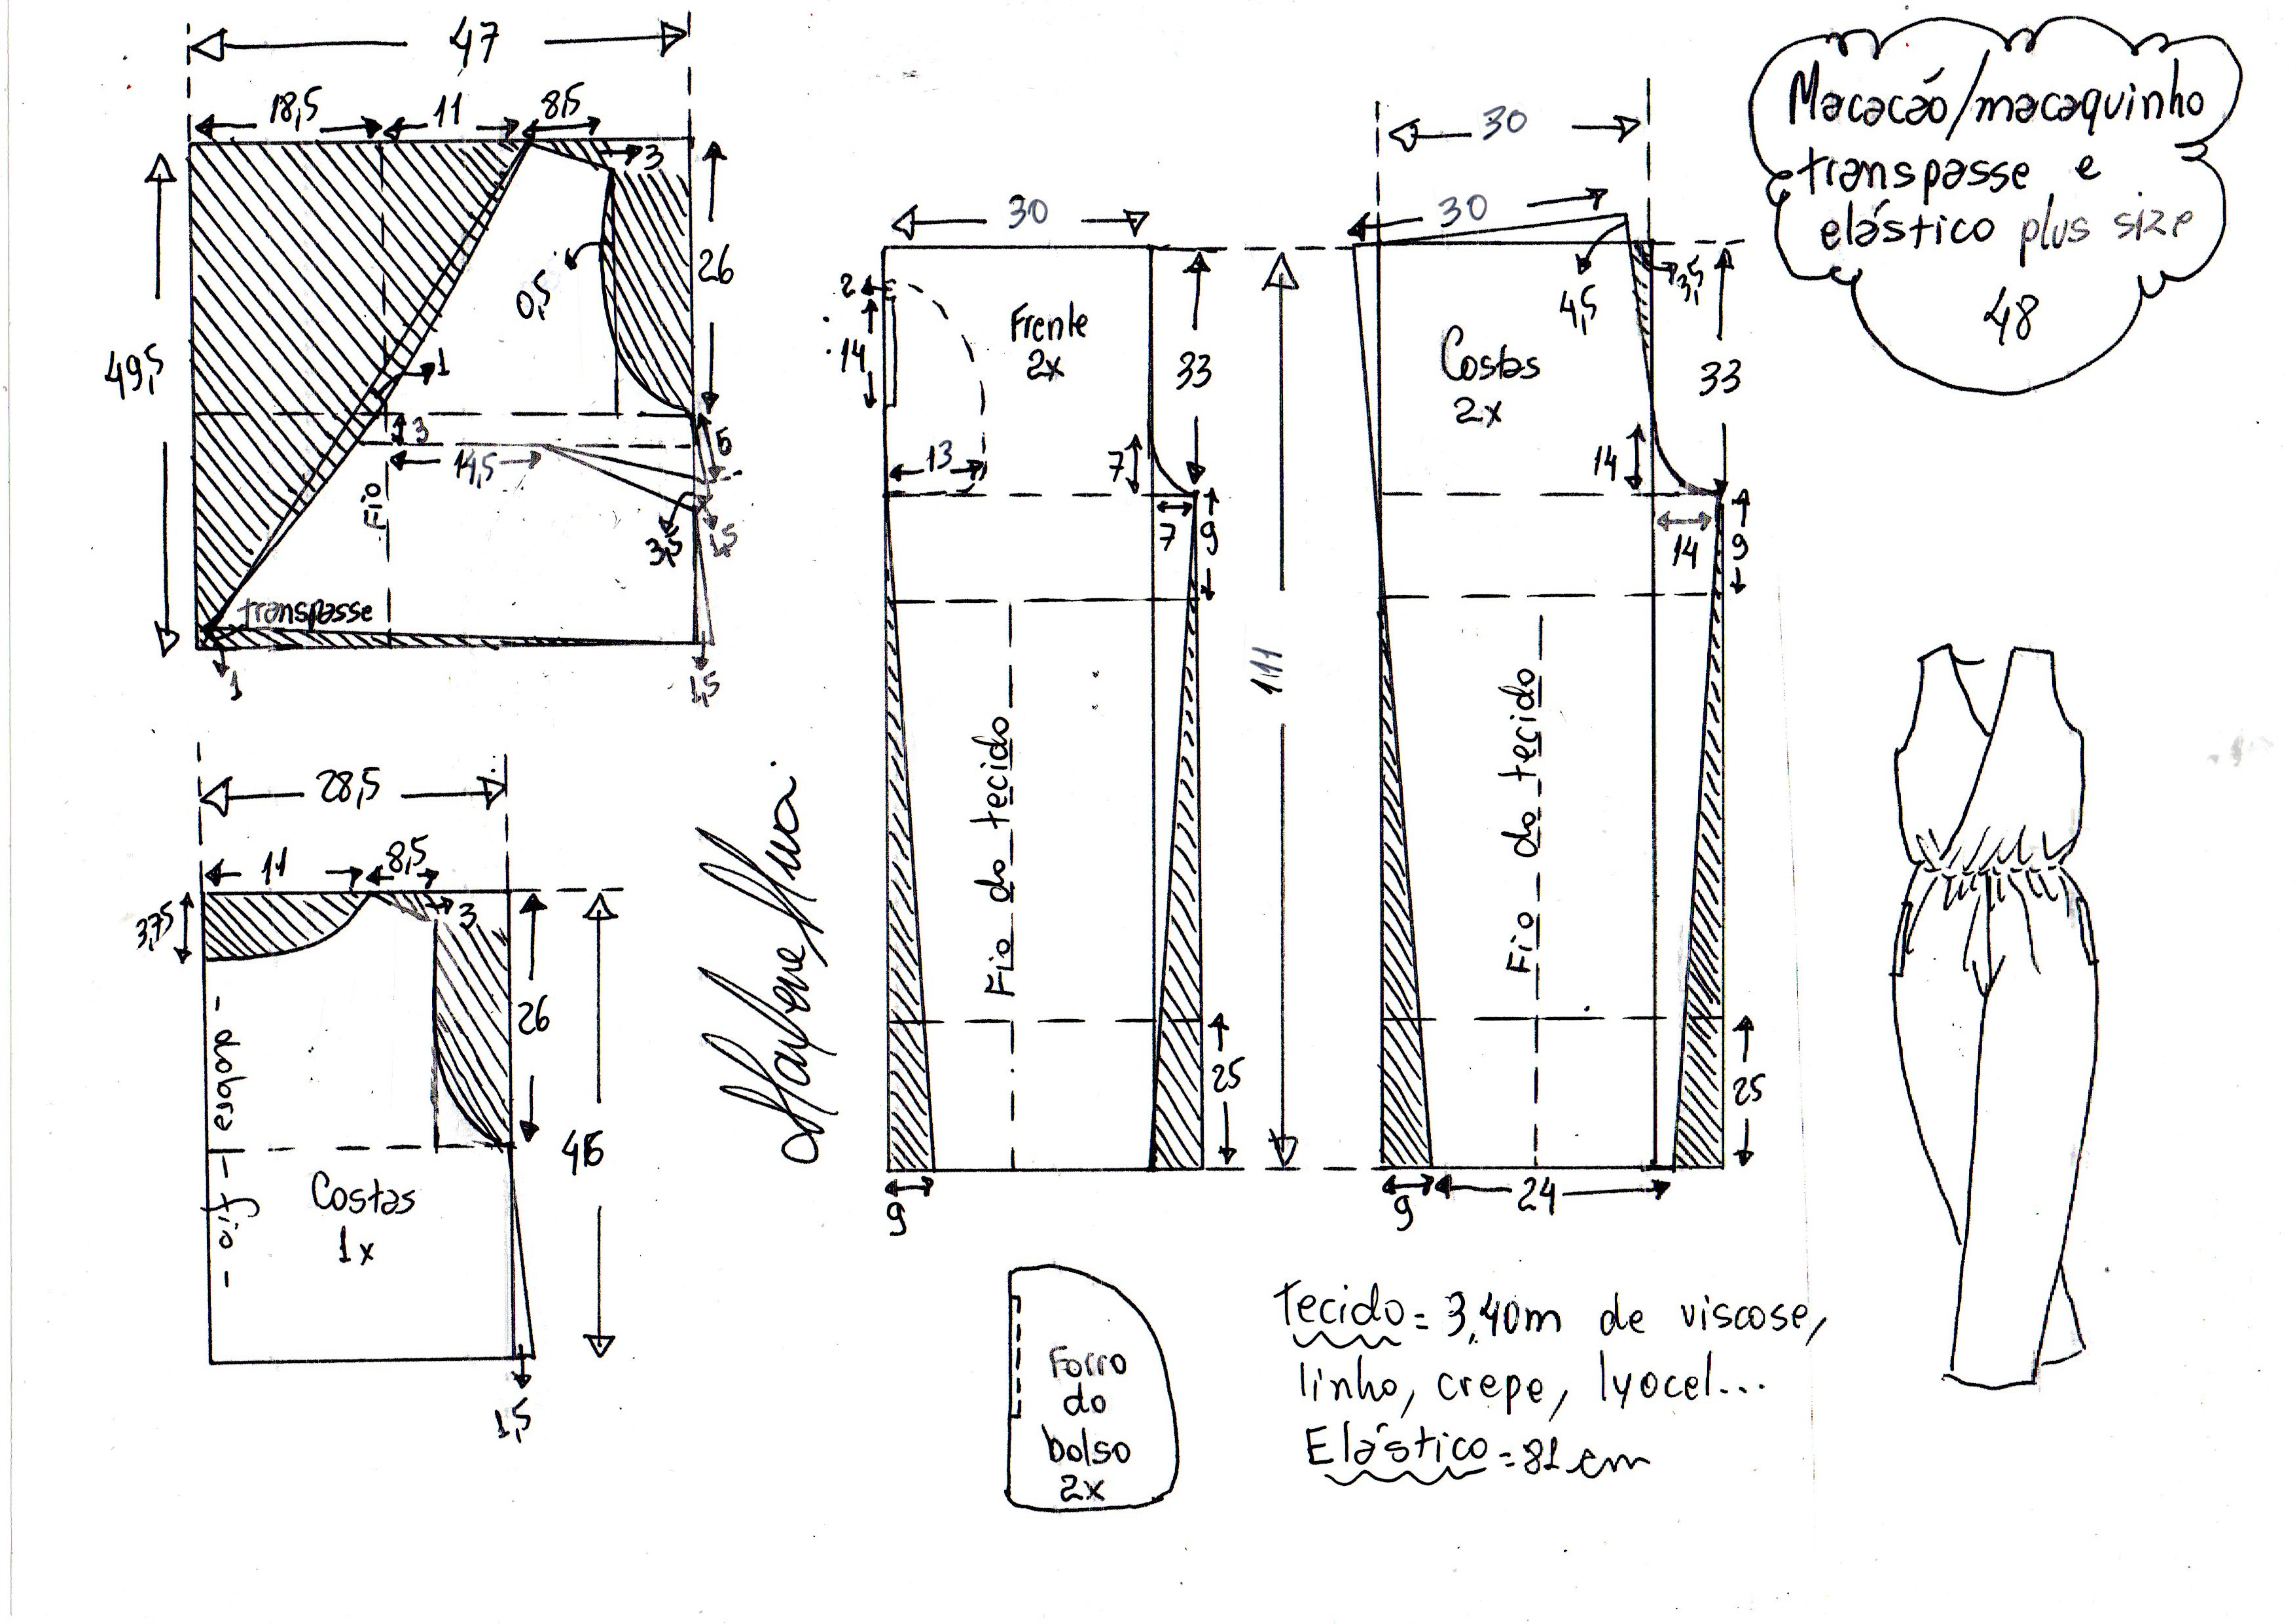 47
18,5
11
8,5
3
49,5
26
0,5
1
3
14,5
6
3,5
1,5
Fio
transpasse
1
1,5
28,5
11
8,5
3,75
3
26
dobra
fio
46
Costas
1x
1,5
Marlene Mukai
30
2
14
Frente
2x
33
13
7
7
9
Fio do tecido
111
25
9
30
30
4,5
3,5
Costas
2x
33
14
14
9
Fio do tecido
25
9
24
Macacão/macaquinho
transpasse e
elástico plus size
48
Forro
do
bolso
2x
tecido = 3,40m de viscose,
linho, crepe, lyocel...
Elástico = 81 cm